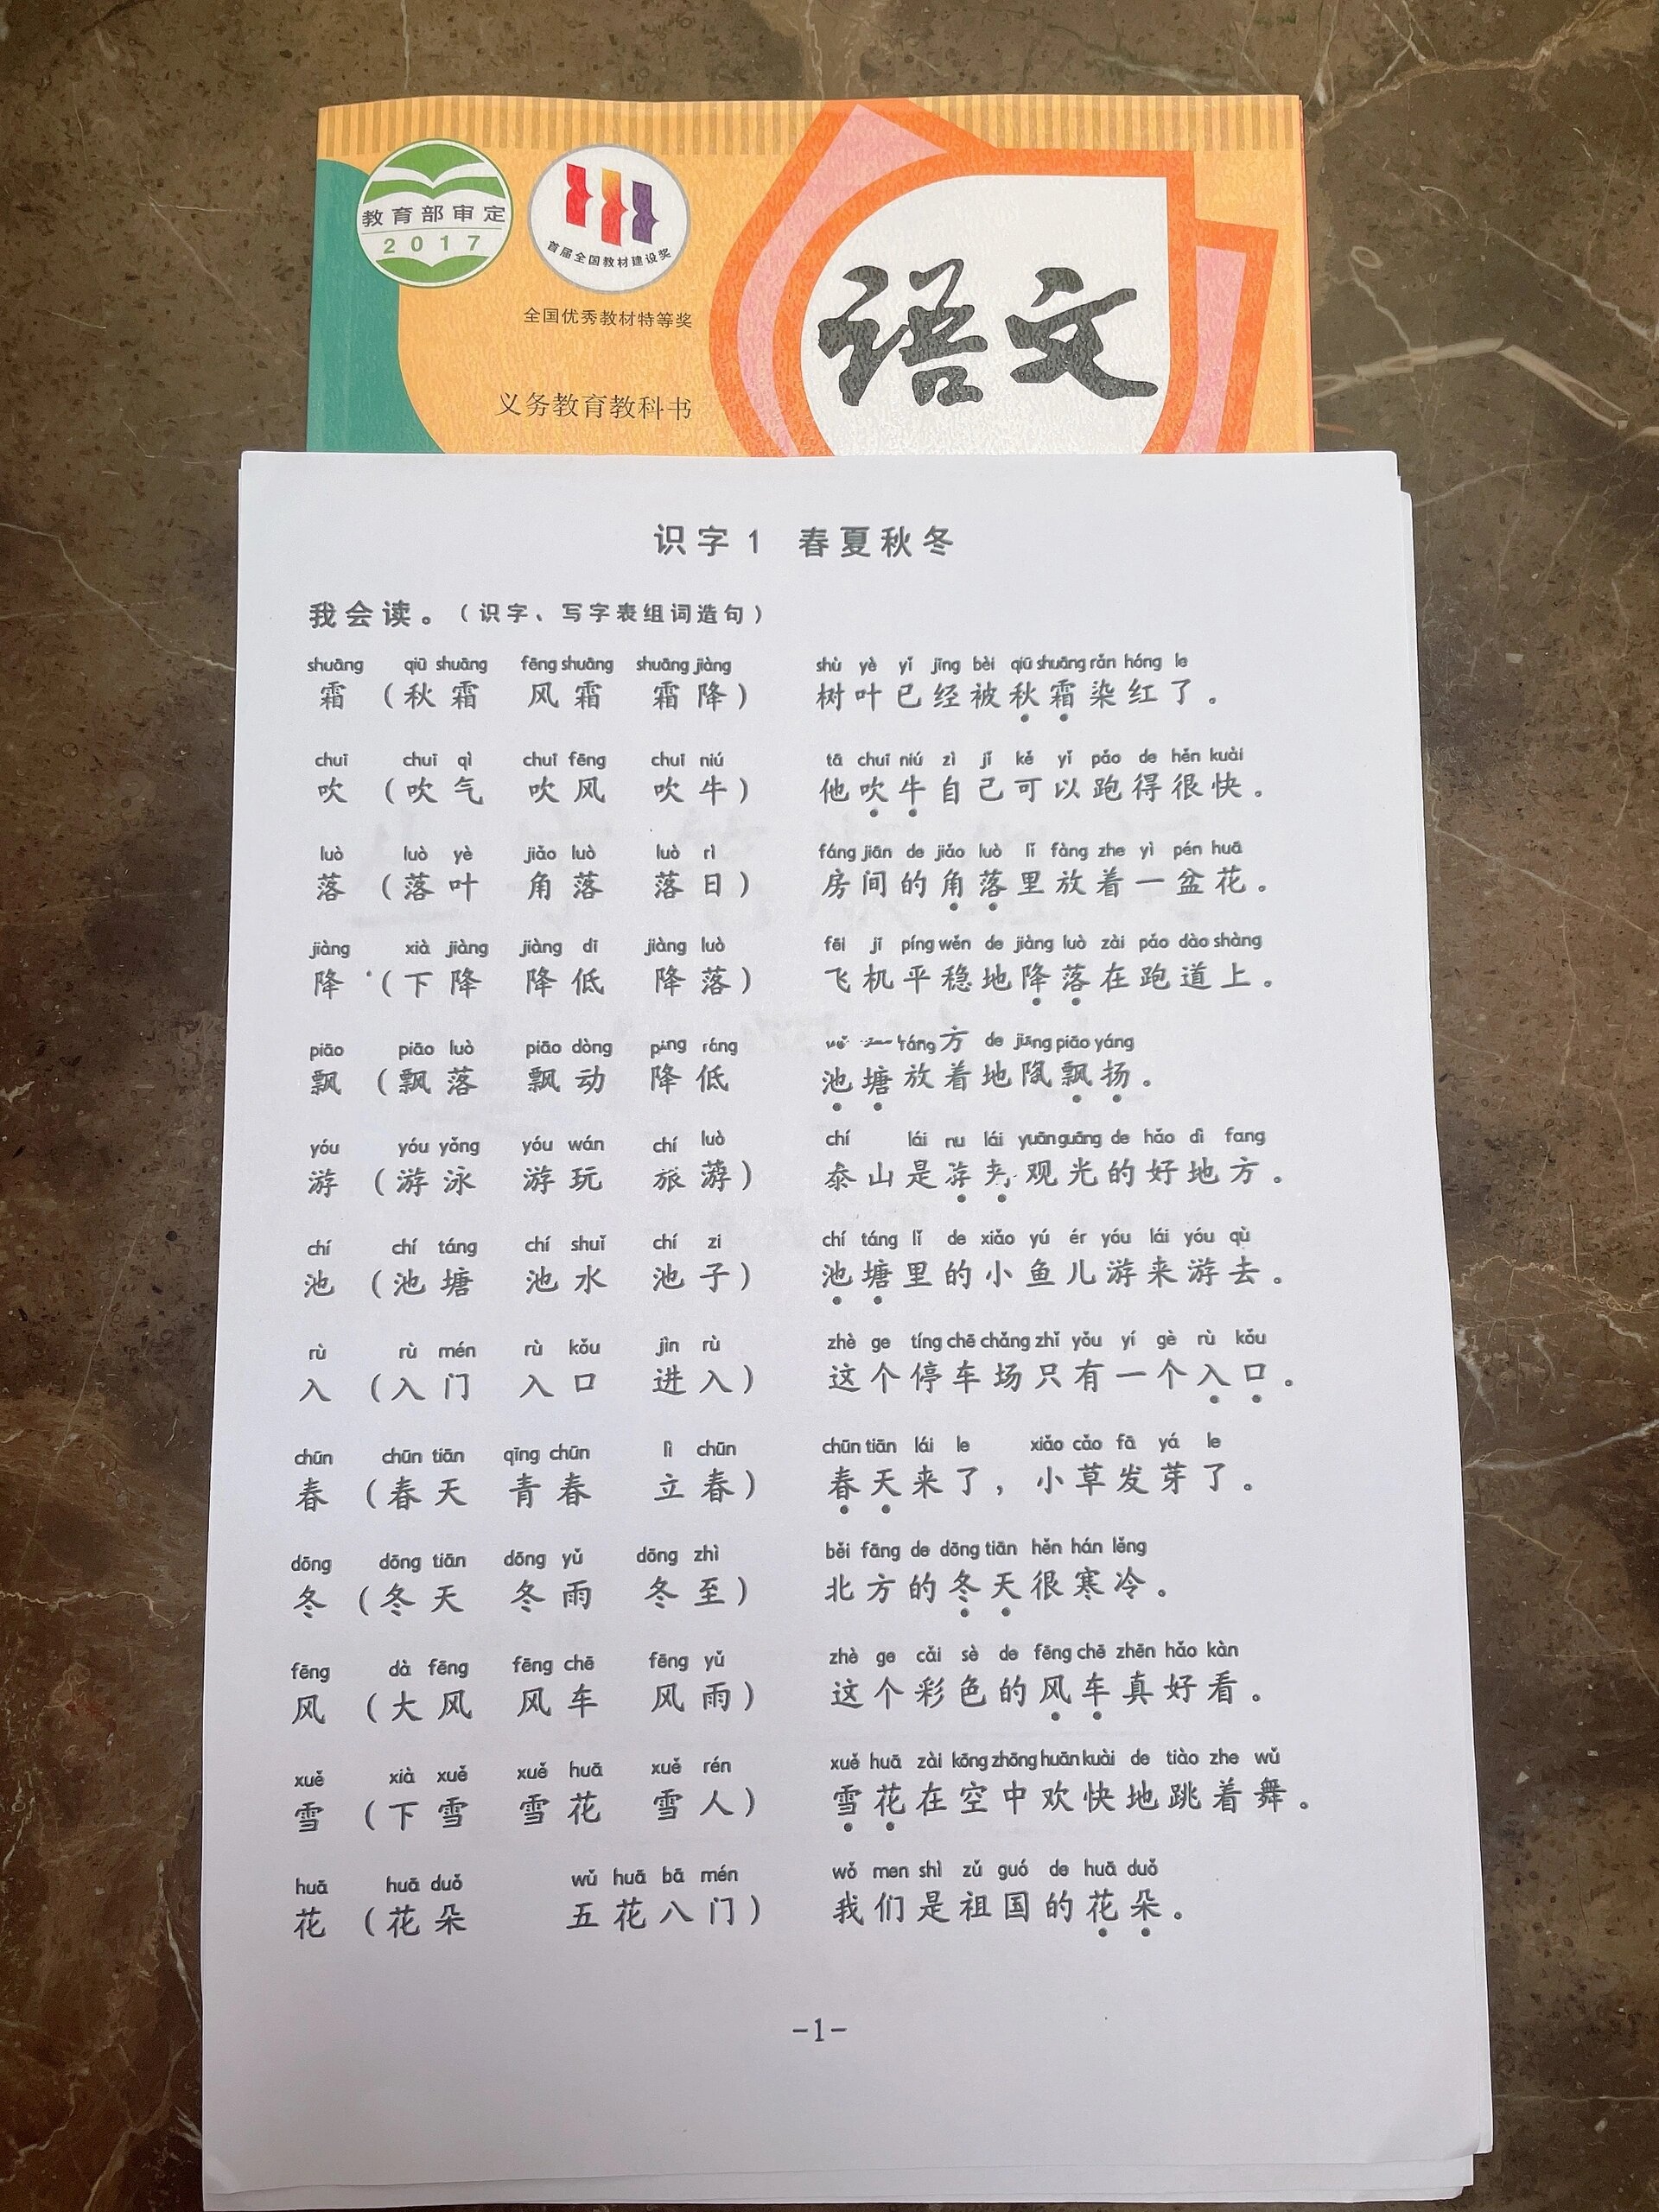 教育部审定
2017
首届全国教材建设奖
全国优秀教材特等奖
义务教育教科书
语文
识字1 春夏秋冬
我会读。（识字、写字表组词造句）
shuāng qiū shuāng fēng shuāng shuāng jiàng shù yè yǐ jīng bèi qiū shuāng rǎn hóng le
霜（秋霜 风霜 霜降） 树叶已经被秋霜染红了。
chuī chuī qì chuī fēng chuī niú tā chuī niú zì jǐ kě yǐ pǎo de hěn kuài
吹（吹气 吹风 吹牛） 他吹牛自己可以跑得很快。
luò luò yè jiǎo luò luò rì fáng jiān de jiǎo luò lǐ fàng zhe yì pén huā
落（落叶 角落 落日） 房间的角落里放着一盆花。
jiàng xià jiàng jiàng dī jiàng luò fēi jī píng wěn de jiàng luò zài pǎo dào shàng
降（下降 降低 降落） 飞机平稳地降落在跑道上。
piāo piāo luò piāo dòng de piāo yáng
飘（飘落 飘动 降低 池塘放着地飘扬。
yóu yóu yǒng yóu wán chí luò chí lái lái yuān guāng de hǎo dì fang
游（游泳 游玩 旅游） 泰山是观光的好地方。
chí chí táng chí shuǐ chí zi chí táng lǐ de xiǎo yú ér yóu lái yóu qù
池（池塘 池水 池子） 池塘里的小鱼儿游来游去。
rù rù mén rù kǒu jìn rù zhè ge tíng chē chǎng zhǐ yǒu yí gè rù kǒu
入（入门 入口 进入） 这个停车场只有一个入口。
chūn chūn tiān qīng chūn lì chūn chūn tiān lái le xiǎo cǎo fā yá le
春（春天 青春 立春） 春天来了，小草发芽了。
dōng dōng tiān dōng yǔ dōng zhì běi fāng de dōng tiān hěn hán lěng
冬（冬天 冬雨 冬至） 北方的冬天很寒冷。
fēng dà fēng fēng chē fēng yǔ zhè ge cǎi sè de fēng chē zhēn hǎo kàn
风（大风 风车 风雨） 这个彩色的风车真好看。
xuě xià xuě xuě huā xuě rén xuě huā zài kōng zhōng huān kuài de tiào zhe wǔ
雪（下雪 雪花 雪人） 雪花在空中欢快地跳着舞。
huā huā duǒ wǔ huā bā mén wǒ men shì zǔ guó de huā duǒ
花（花朵 五花八门） 我们是祖国的花朵。
-1-